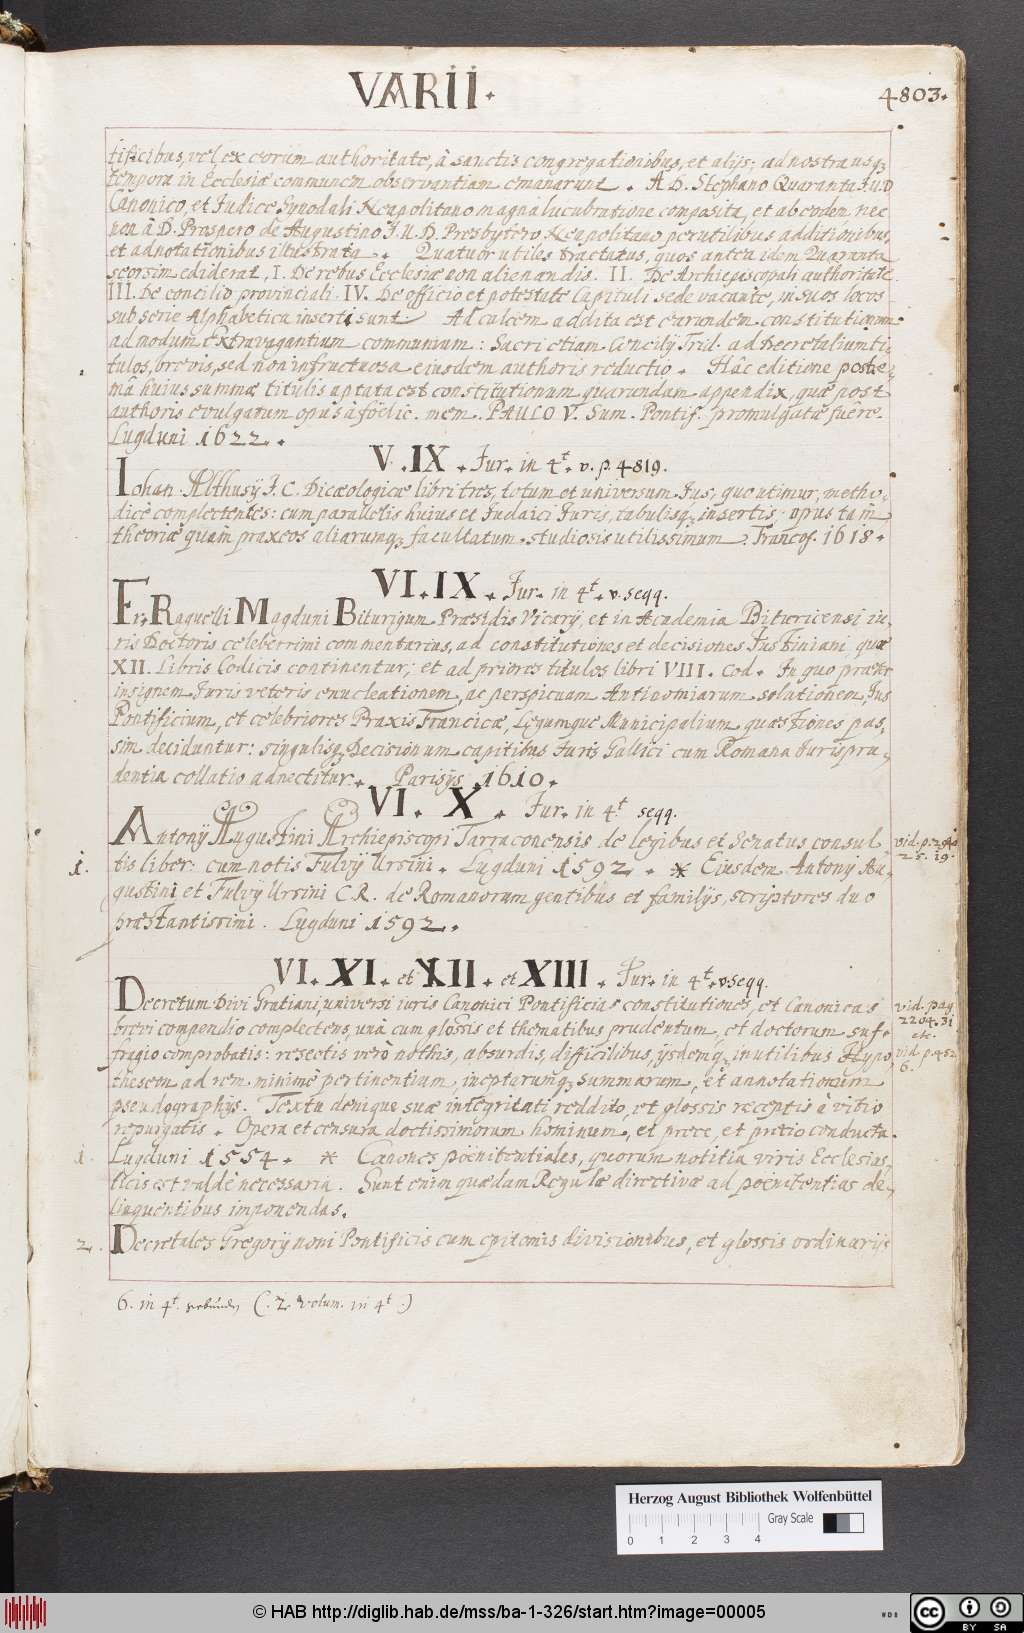 VARII.
4803.
tificibus, vel ex eorum authoritate, à sanctis congregationibus, et alijs; ad nostra usq;
tempora in Ecclesiæ communem observantiam emanarunt. A D. Stephano Quaranta I.U.D
Canonico, et Iudice Synodali Neapolitano magna lucubratione composita, et ab eodem nec
non à D. Prospero de Augustino I.U.D. Presbytero Neapolitano perutilibus additionibus,
et adnotationibus illustrata. Quatuor utiles tractatus, quos antea idem Quaranta
seorsim ediderat, I. De rebus Ecclesiæ non alienandis. II. De Archiepiscopali authoritate
III. De concilio provinciali. IV. De officio et potestate Capituli sede vacante, in suos locos
sub serie Alphabetica inserti sunt. Ad calcem addita est earundem constitutionum
ad modum extravagantium communium: Sacri etiam Concilij Trid. ad Decretalium ti-
tulos, brevis, sed non infructuosa eiusdem authoris reductio. Hâc editione postre-
mâ huius summæ titulis aptata est constitutionum quarundam appendix, quæ post
authoris evulgatum opus à foelic. mem. PAULO V. Sum. Pontif. promulgatæ fuere.
Lugduni 1622.
V. IX. Jur. in 4t. v. p. 4819.
Iohan. Althusij I. C. Dicæologicæ libri tres, totum et universum Ius, quo utimur, metho-
dice complectentes: cum parallelis huius et Iudaici Iuris, tabulisq; insertis; opus tam
theoriæ quàm praxeos aliarumq; facultatum studiosis utilissimum. Francof. 1618.
VI. IX. Jur. in 4t. v. seqq.
Fr. Raguelli Magduni Biturigum Præsidis Vicarij, et in Academia Bituricensi iu-
ris Doctoris celeberrimi commentarius, ad constitutiones et decisiones Justiniani, quæ
XII. Libris Codicis continentur; et ad priores titulos libri VIII. Cod. In quo præter
insignem Iuris veteris enucleationem, ac perspicuam Antinomiarum solutionem, Jus
Pontificium, et celebriores Praxis Francicæ, Legumque Municipalium quæstiones pas-
sim deciduntur: singulisq; Decisionum capitibus Juris Gallici cum Romana Iurispru-
dentia collatio adnectitur. Parisijs 1610.
VI. X. Jur. in 4t seqq.
Antonij Augustini Archiepiscopi Tarraconensis de legibus et Senatus consul-
vid. p. 2
25. 19.
1.
tis liber: cum notis Fulvij Ursini. Lugduni 1592. * Eiusdem Antonij Au-
gustini et Fulvij Ursini C.R. de Romanorum gentibus et familijs, scriptores duo
præstantissimi. Lugduni 1592.
VI. XI. et XII. et XIII. Jur. in 4t. v. seqq.
Decretum Divi Gratiani, universi iuris Canonici Pontificias constitutiones, et Canonicas
vid. pag
2204. 31
etc.
brevi compendio complectens, unà cum glossis et thematibus prudentum, et doctorum suf-
fragio comprobatis: resectis verò nothis, absurdis, difficilibus, ijsdemq; inutilibus Hypo-
vid. p. 452
6.
thesem ad rem minimè pertinentium, ineptarumq; summarum, et annotationum
pseudographijs. Textu denique suæ integritati reddito, et glossis receptis à vitio
repurgatis. Opera et censura doctissimorum hominum, et prece, et precio conducta.
1.
Lugduni 1554. * Canones poenitentiales, quorum notitia viris Ecclesias-
ticis est valdè necessaria. Sunt enim quædam Regulæ directivæ ad poenitentias de-
linquentibus imponendas.
2.
Decretales Gregorij noni Pontificis cum epitomis divisionibus, et glossis ordinarijs
6. in 4t. gebunden (. 2 Volum. in 4t .)
Herzog August Bibliothek Wolfenbüttel
Gray Scale
0 1 2 3 4
© HAB http://diglib.hab.de/mss/ba-1-326/start.htm?image=00005
WDB
cc BY SA